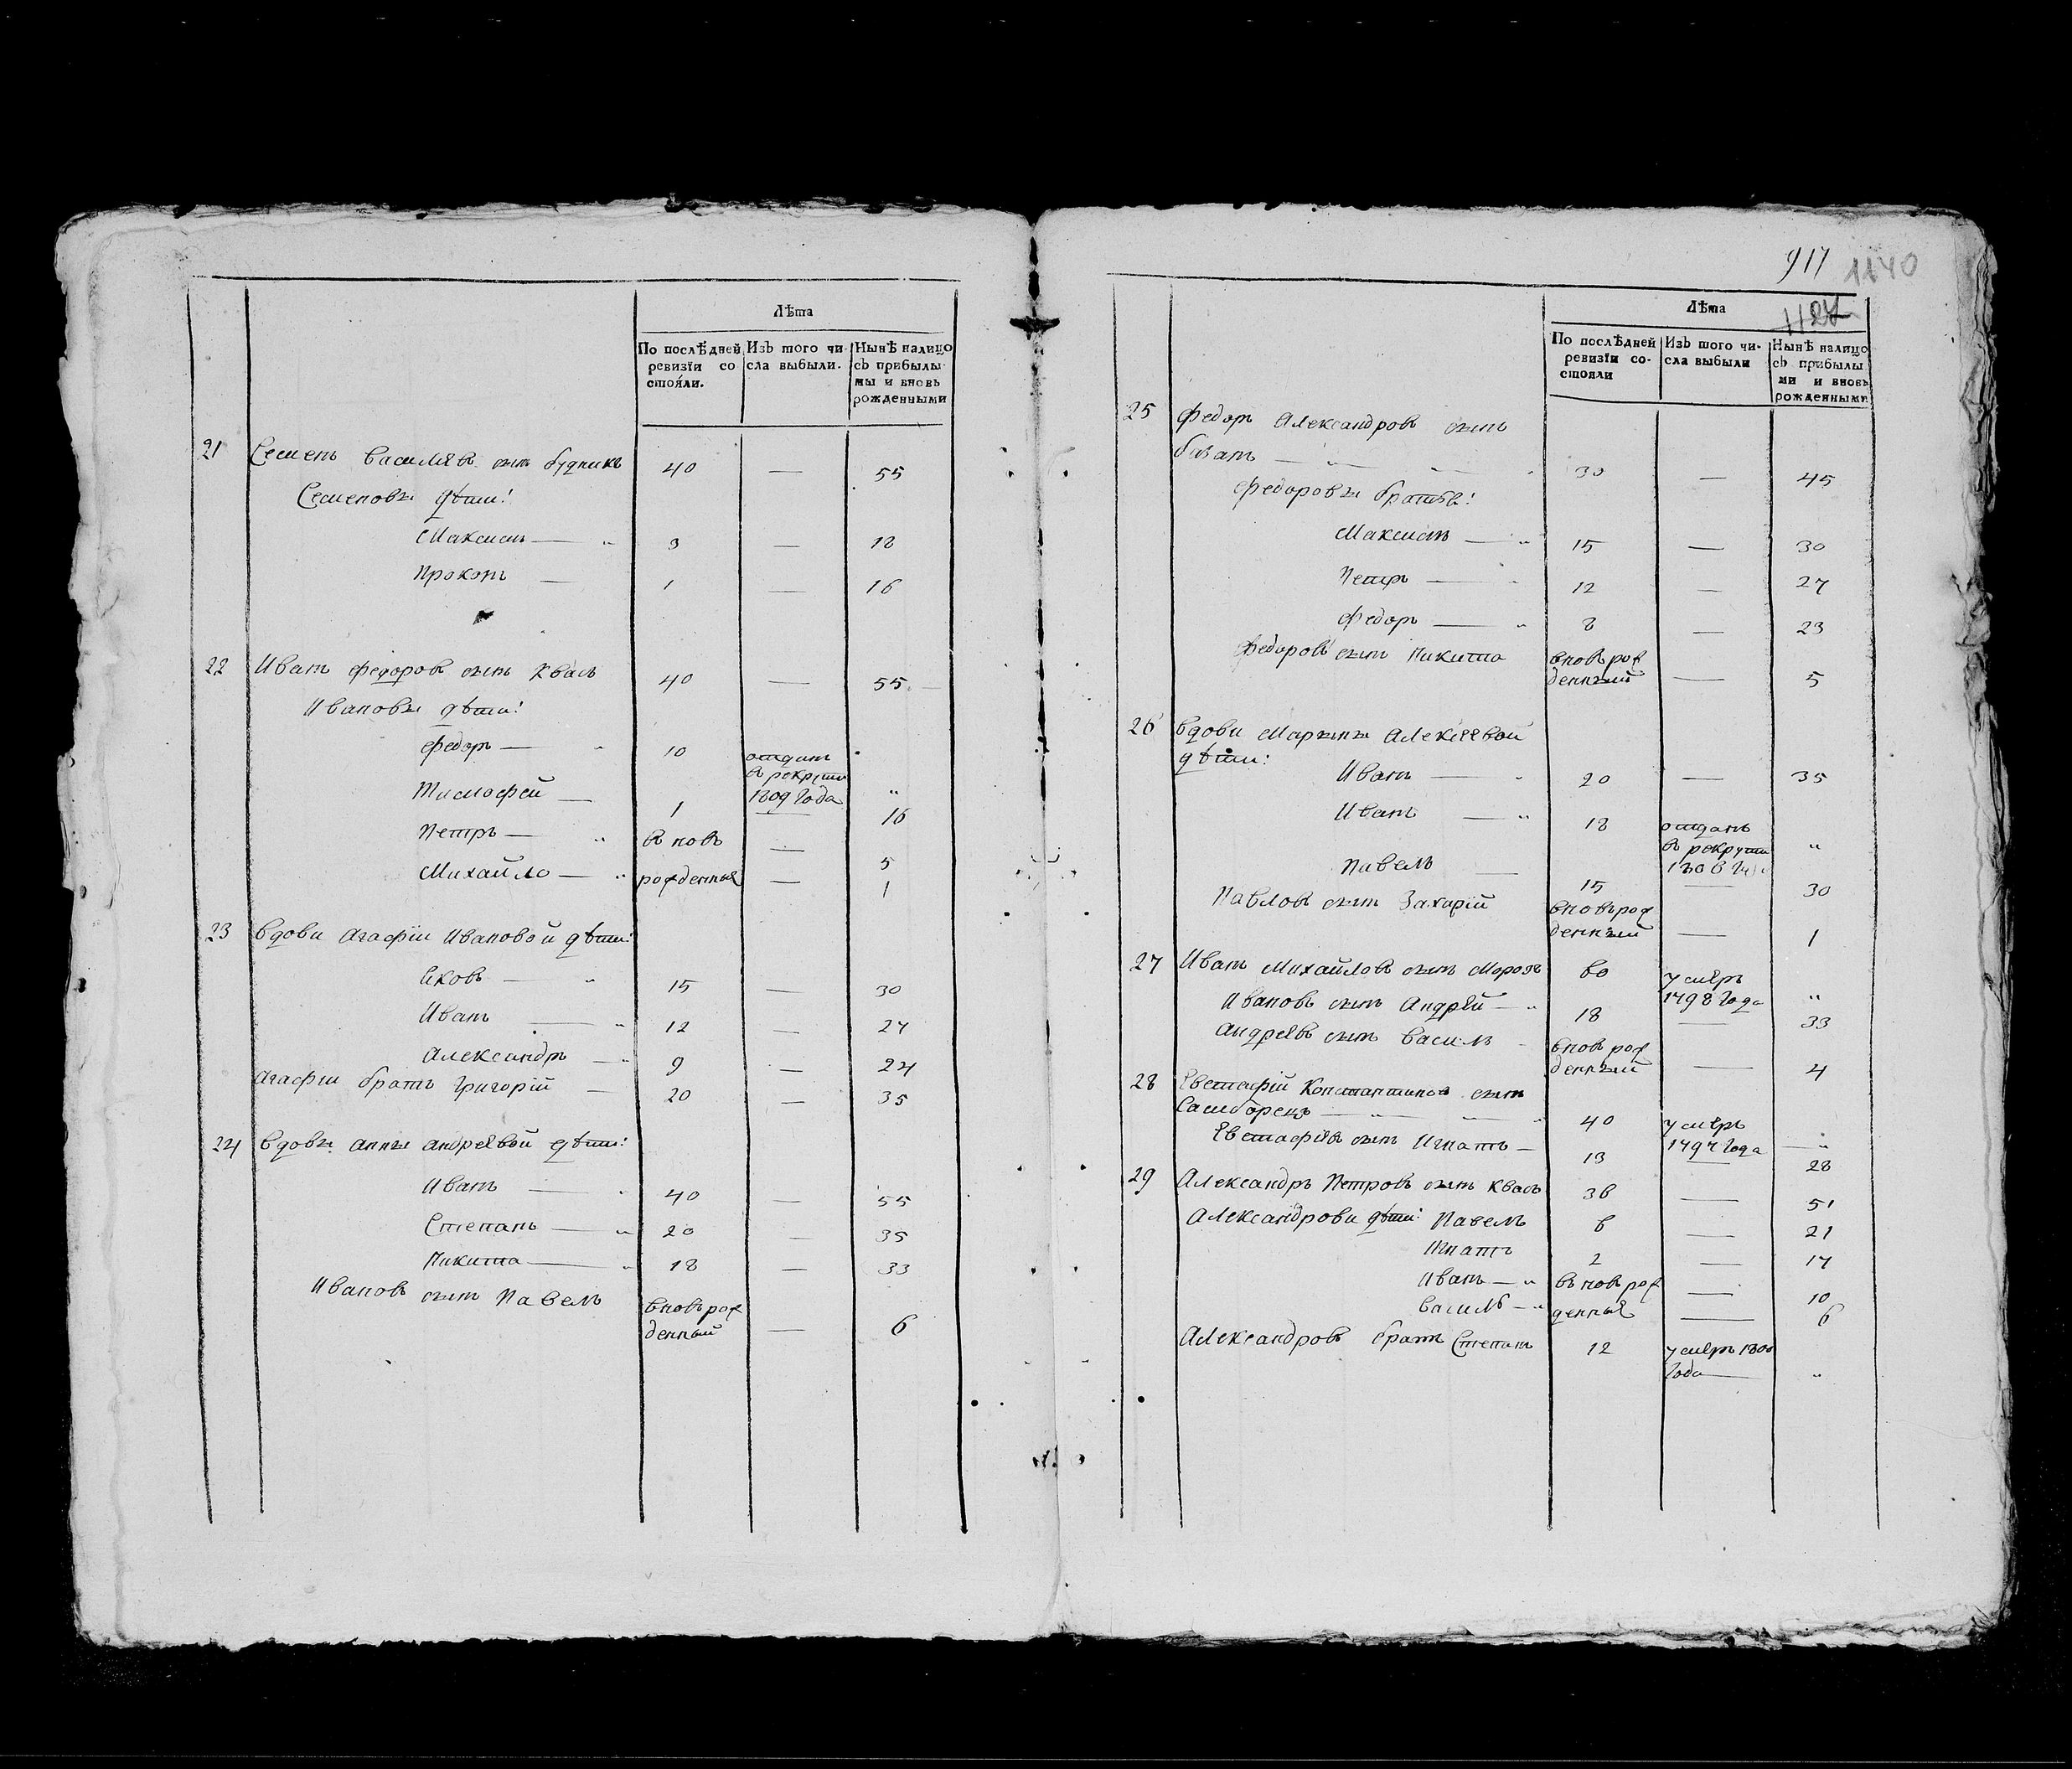 Лѣта
По послѣдней ревизїи со стояли.
Изъ того числа выбыли.
Нынѣ налицо съ прибылыми и вновь рожденными
21 Семенъ Васильевъ сынъ Будникъ 40 — 55
Семеновы дѣти:
Максимъ — „ 3 — 18
Прокопъ — 1 — 16
22 Иванъ Федоровъ сынъ Квасъ 40 — 55
Ивановы дѣти:
Федоръ — „ 10 отданъ в рекруты 1809 года „
Тимофей — 1 — 16
Петръ — „ в новь — 5
Михайло — „ рожденныя — 1
23 Вдовы Агафїи Ивановой дѣти:
Яковъ — „ 15 — 30
Иванъ — „ 12 — 27
Александръ — „ 9 — 24
Агафїи братъ Григорїй — 20 — 35
24 Вдовы Анны Андреевой дѣти:
Иванъ — 40 — 55
Степанъ — „ 20 — 35
Никита — „ 18 — 33
Ивановъ сынъ Павелъ вновь рожденный — 6
917 1140
1127
Лѣта
По послѣдней ревизїи состояли
Изъ того числа выбыли
Нынѣ налицо съ прибылыми и вновь рожденными
25 Федоръ Александровъ сынъ
— „ — 30 — 45
Федоровы братья:
Максимъ — „ 15 — 30
Петръ — „ 12 — 27
Федоръ — „ 8 — 23
Федоровъ сынъ Никита вновь рожденный — 5
26 Вдовы Марыны Алексеевой
дѣти:
Иванъ — „ 20 — 35
Иванъ — „ 18 отданъ в рекруты „
Павелъ — 15 — 30
Павловъ сынъ Захарїй вновь рожденный — 1
27 Иванъ Михайловъ сынъ Морозъ 60 умеръ 1798 года „
Ивановъ сынъ Андрей — „ 18 — 33
Андреевъ сынъ Василь вновь рожденный — 4
28 Евстафїй Константиновъ сынъ
— „ — „ 40 умеръ 1797 года — „
Евстафїевъ сынъ Игнатъ — 13 — 28
29 Александръ Петровъ сынъ Квасъ 36 — 51
Александровы дѣти: Павелъ 6 — 21
Игнатъ 2 — 17
Иванъ — „ въ новь рож — 10
Василь — „ денныя — 6
Александровъ братъ Степанъ 12 умеръ 1800 года — „